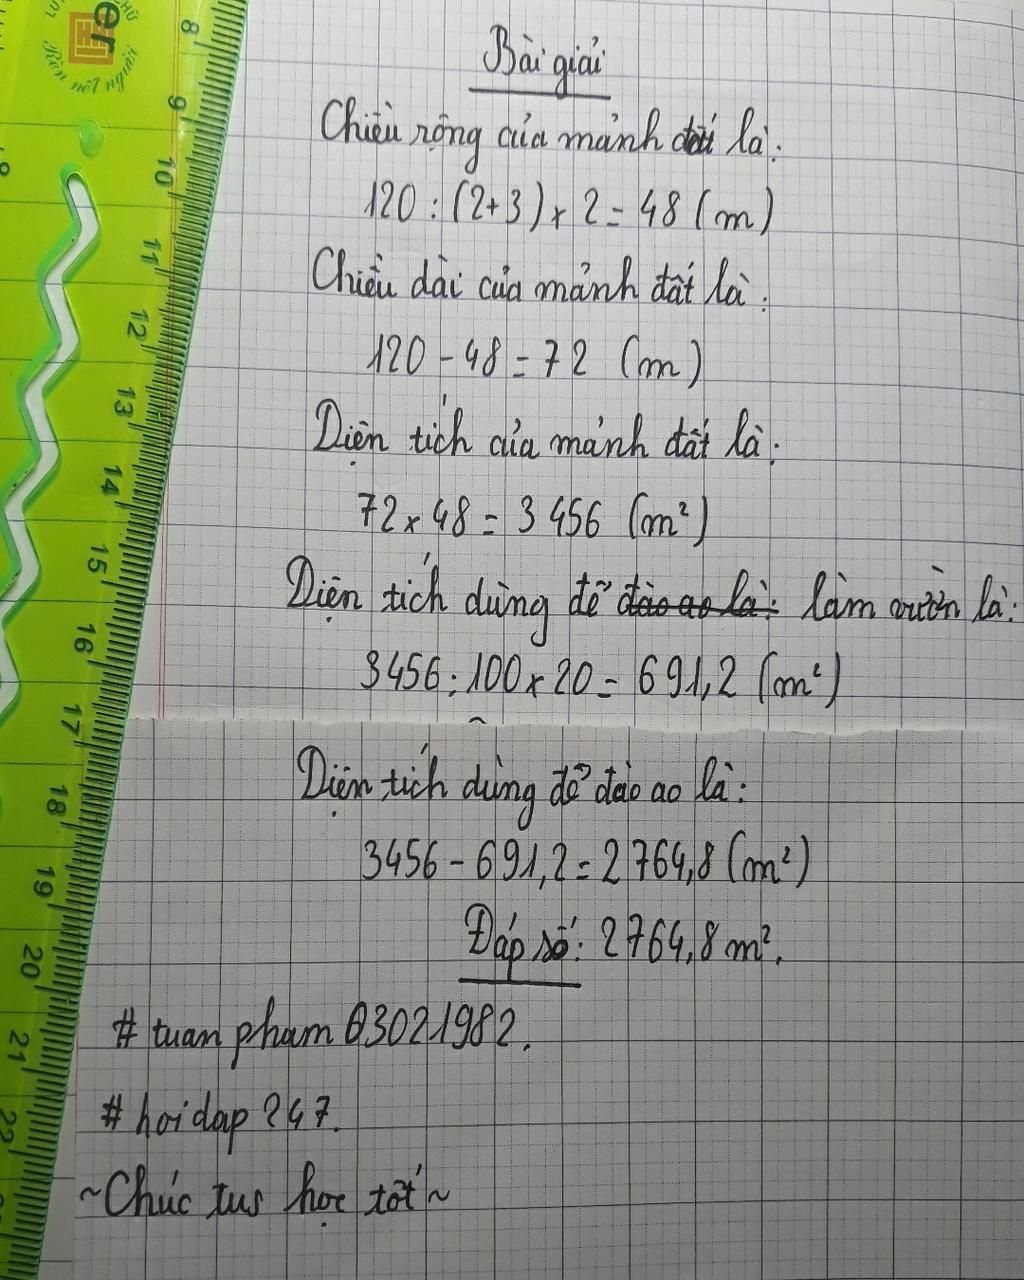 Bài giải
Chiều rộng của mảnh đất là:
120 : (2+3) x 2 = 48 (m)
Chiều dài của mảnh đất là:
120 - 48 = 72 (m)
Diện tích của mảnh đất là:
72 x 48 = 3 456 (m²)
Diện tích dùng để đào ao là: làm vườn là:
3456 : 100 x 20 = 691,2 (m²)
Diện tích dùng để đào ao là:
3456 - 691,2 = 2 764,8 (m²)
Đáp số: 2 764,8 m².
# tuan pham 03021982.
# hoi dap 247.
~Chúc tus học tốt~
er
CHỮ
Rèn nết người
8
9
10
11
12
13
14
15
16
17
18
19
20
21
22